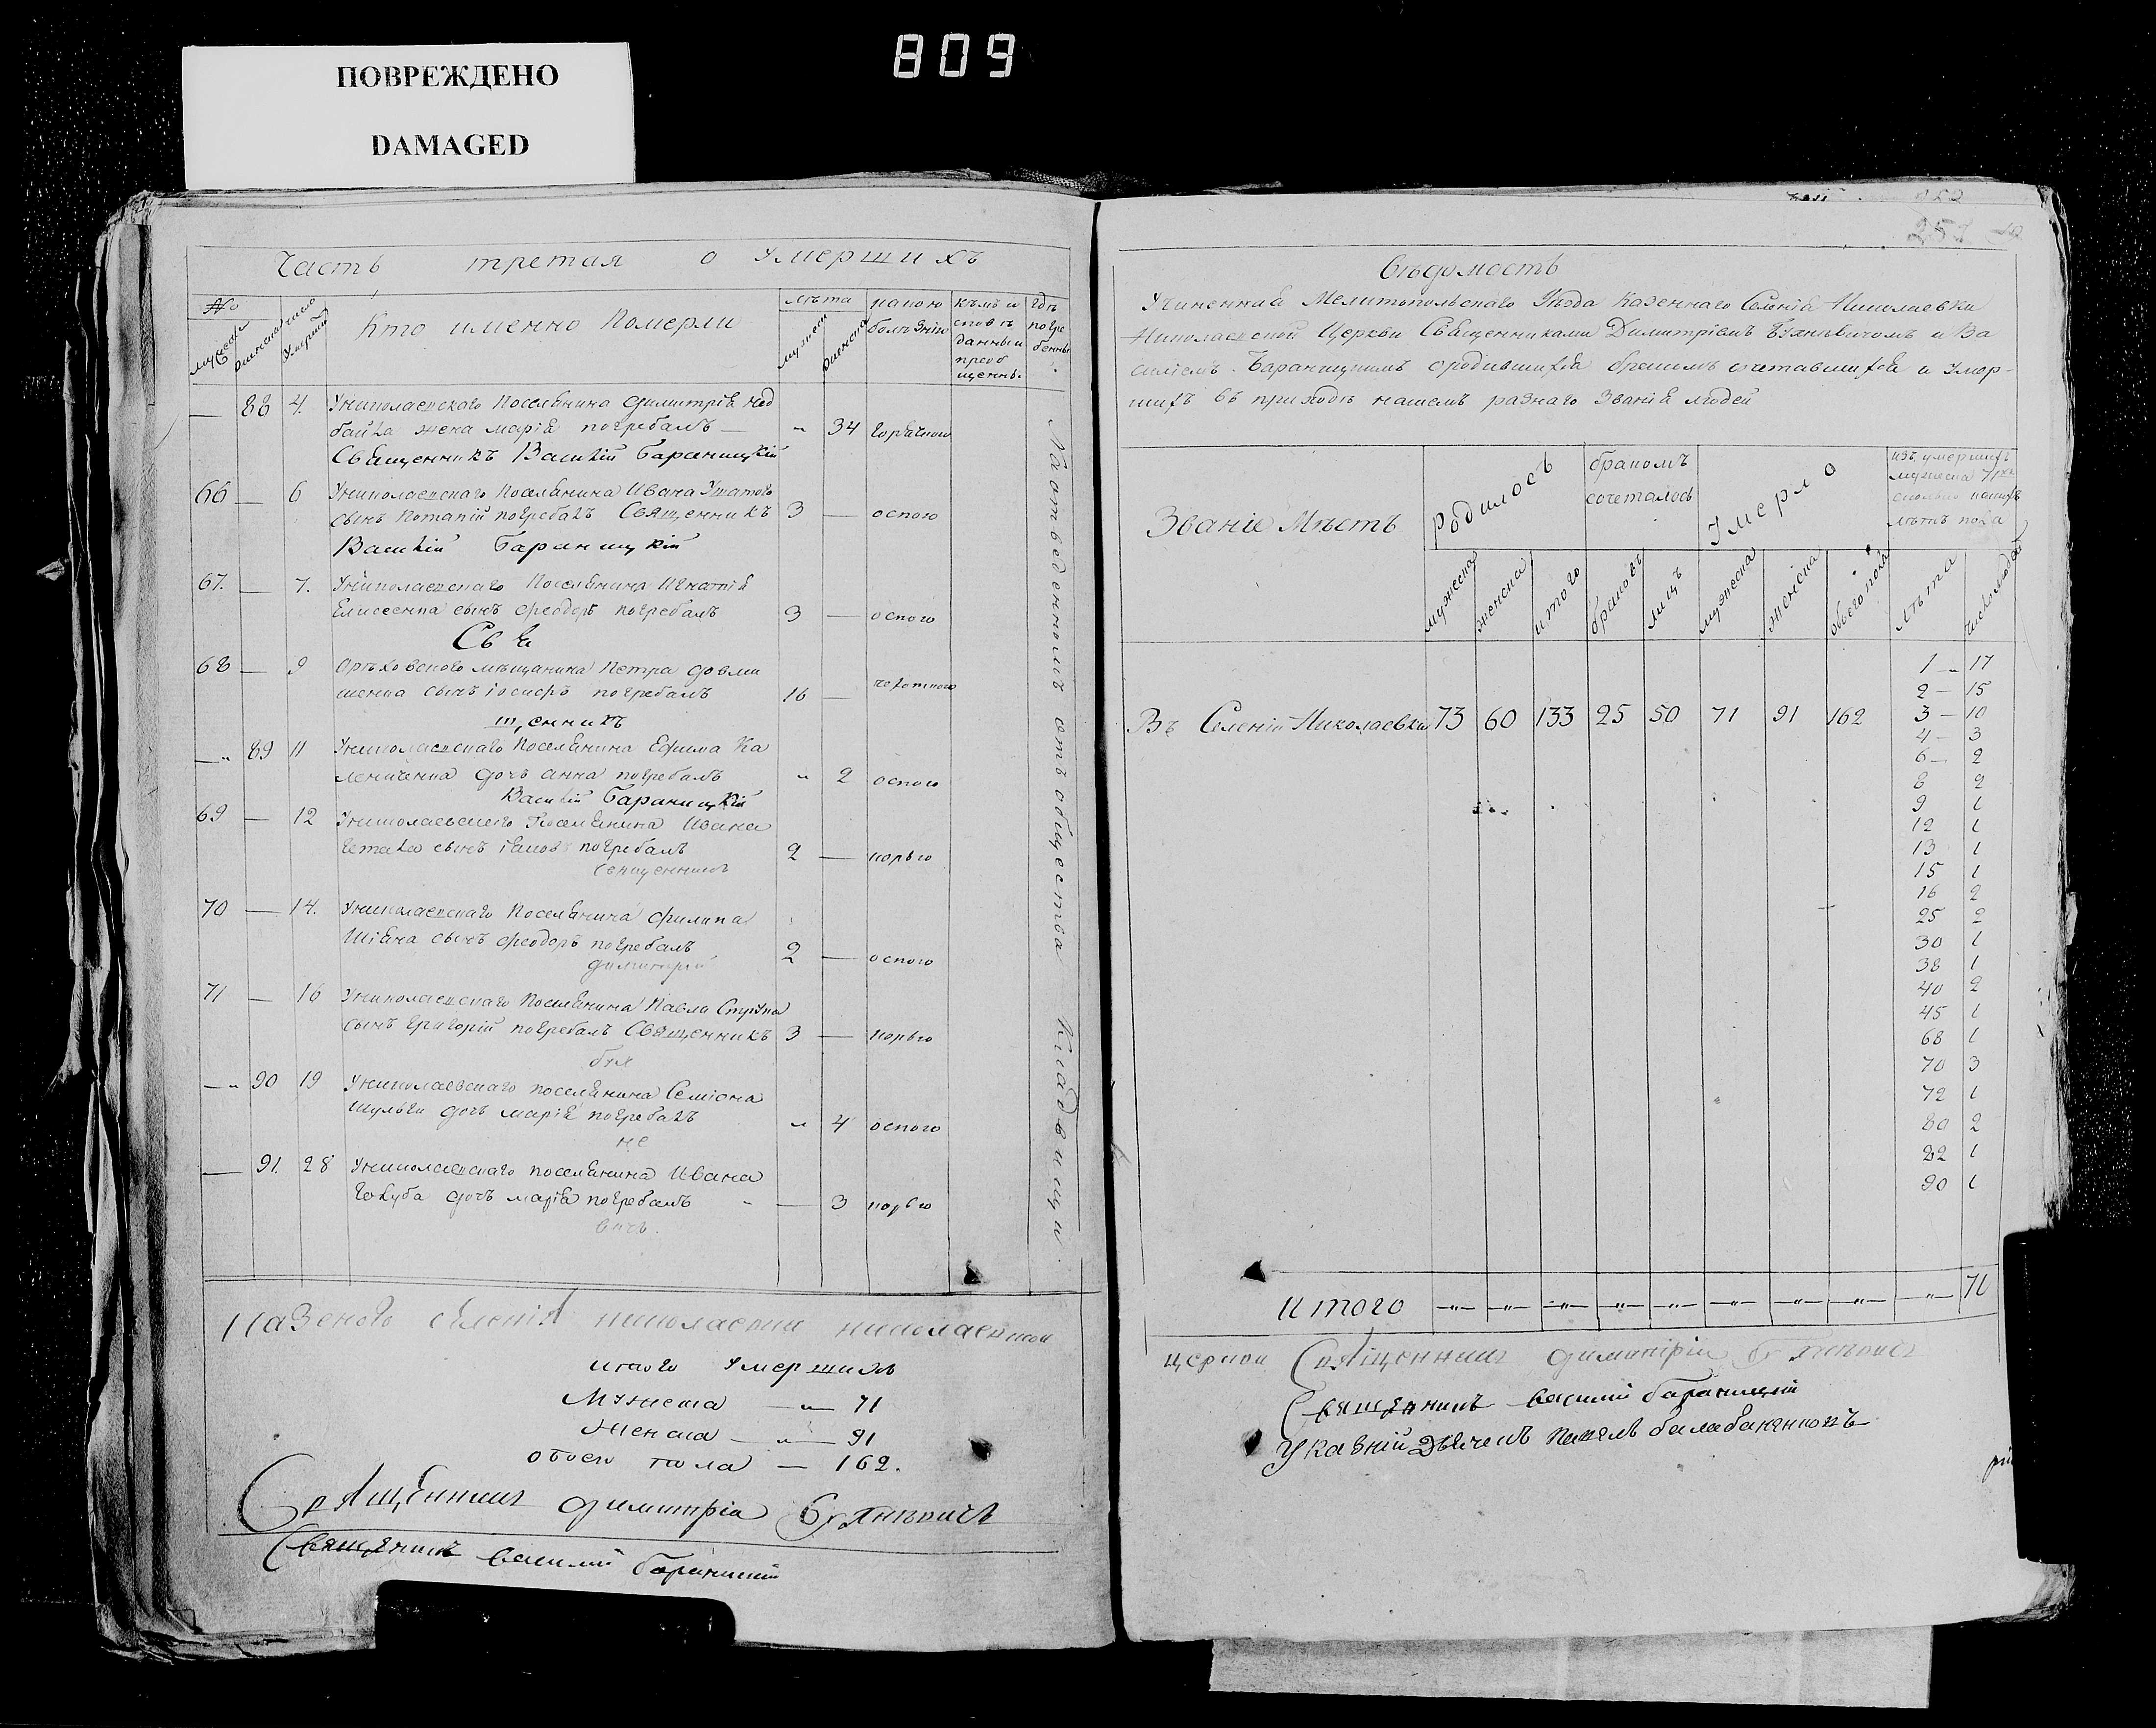 ПОВРЕЖДЕНО
DAMAGED
809
Часть третая о Умершихъ
№
мужеска женска число Умерш
Кто именно Померли
лѣта
мужеск женска
какою болѣзнію
кѣмъ исповѣданы и преобщенны.
гдѣ погребенны
— 88 4. Униколаевскаго Поселянина Димитрія
жена Марія погребалъ — „ 34 горячкою
Священникъ Василій Бараницкій
66 — 6 Униколаевскаго Поселянина Ивана
сынъ Потапій погребалъ Священникъ 3 — оспою
Василій Бараницкій
67. — 7. Униколаевскаго Поселянина Игнатія
Елисеенка сынъ Феодоръ погребалъ 3 — оспою
Свя
68 — 9 Орѣховскаго мѣщанина Петра
сынъ Іосифъ погребалъ 16 — чехоткою
щенникъ
— „ 89 11 Униколаевскаго Поселянина Ефима Ка
лениченка дочь Анна погребалъ „ 2 оспою
Василій Бараницкій
69 — 12 Униколаевскаго Поселянина Ивана
сынъ погребалъ 2 — корью
Священникъ
70 — 14. Униколаевскаго Поселянина Филипа
сынъ Феодоръ погребалъ 2 — оспою
Димитрій
71 — 16 Униколаевскаго Поселянина Павла
сынъ Григорій погребалъ Священникъ 3 — корью
— „ 90 19 Униколаевскаго поселянина Семіона
Шульги дочь Марія погребалъ „ 4 оспою
— 91. 28 Униколаевскаго поселянина Ивана
Голуба дочь Марія погребалъ — 3 корью
На отведенномъ отъ общества кладбищи.
Казеного селенія Николаевки Николаевской
итого Умершихъ
Мужеска — „ — 71
Женска — „ — 91
обоего пола — 162.
Священникъ Димитрій
Священникъ Василий Бараницкий
251
Вѣдомость
Учиненная Мелитопольскаго Уѣзда Казеннаго Селенія Николаевки
Николаевской Церкви Священниками Димитріемъ и Ва
силіемъ Бараницкимъ о родившихся бракомъ сочетавшихся и Умер-
шихъ въ приходѣ нашемъ разнаго Званія людей
Званіе Мѣстъ
Родилось
бракомъ сочеталось
Умерло
изъ умершихъ
мужеска
лѣтъ пола
мужеска женска итого браковъ лицъ мужеска женска обоего пола лѣта число людей
Въ Селеніи Николаевки 73 60 133 25 50 71 91 162
1 — 17
2 — 15
3 — 10
4 — 3
6 — 2
8 2
9 1
12 1
13 1
15 1
16 2
25 2
30 1
38 1
40 2
45 1
68 1
70 3
72 1
80 2
82 1
90 1
Итого —„— —„— —„— —„— —„— —„— —„— —„— —„— 71
церкви Священникъ Димитрій
Священникъ Василий Бараницкий
Указній Дьячекъ